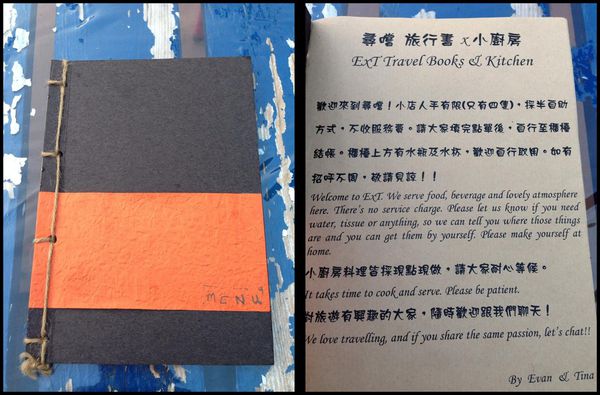 MENU
尋嚐 旅行書 x小廚房
ExT Travel Books & Kitchen
歡迎來到尋嚐！小店人手有限(只有四隻)，採半自助
方式，不收服務費。請大家填完點單後，自行至櫃檯
結帳。櫃檯上方有水瓶及水杯，歡迎自行取用。如有
招呼不周，敬請見諒！！
Welcome to ExT. We serve food, beverage and lovely atmosphere
here. There's no service charge. Please let us know if you need
water, tissue or anything, so we can tell you where those things
are and you can get them by yourself. Please make yourself at
home.
小廚房料理皆採現點現做，請大家耐心等候。
It takes time to cook and serve. Please be patient.
對旅遊有興趣的大家，隨時歡迎跟我們聊天！
We love travelling, and if you share the same passion, let's chat!!
By Evan & Tina